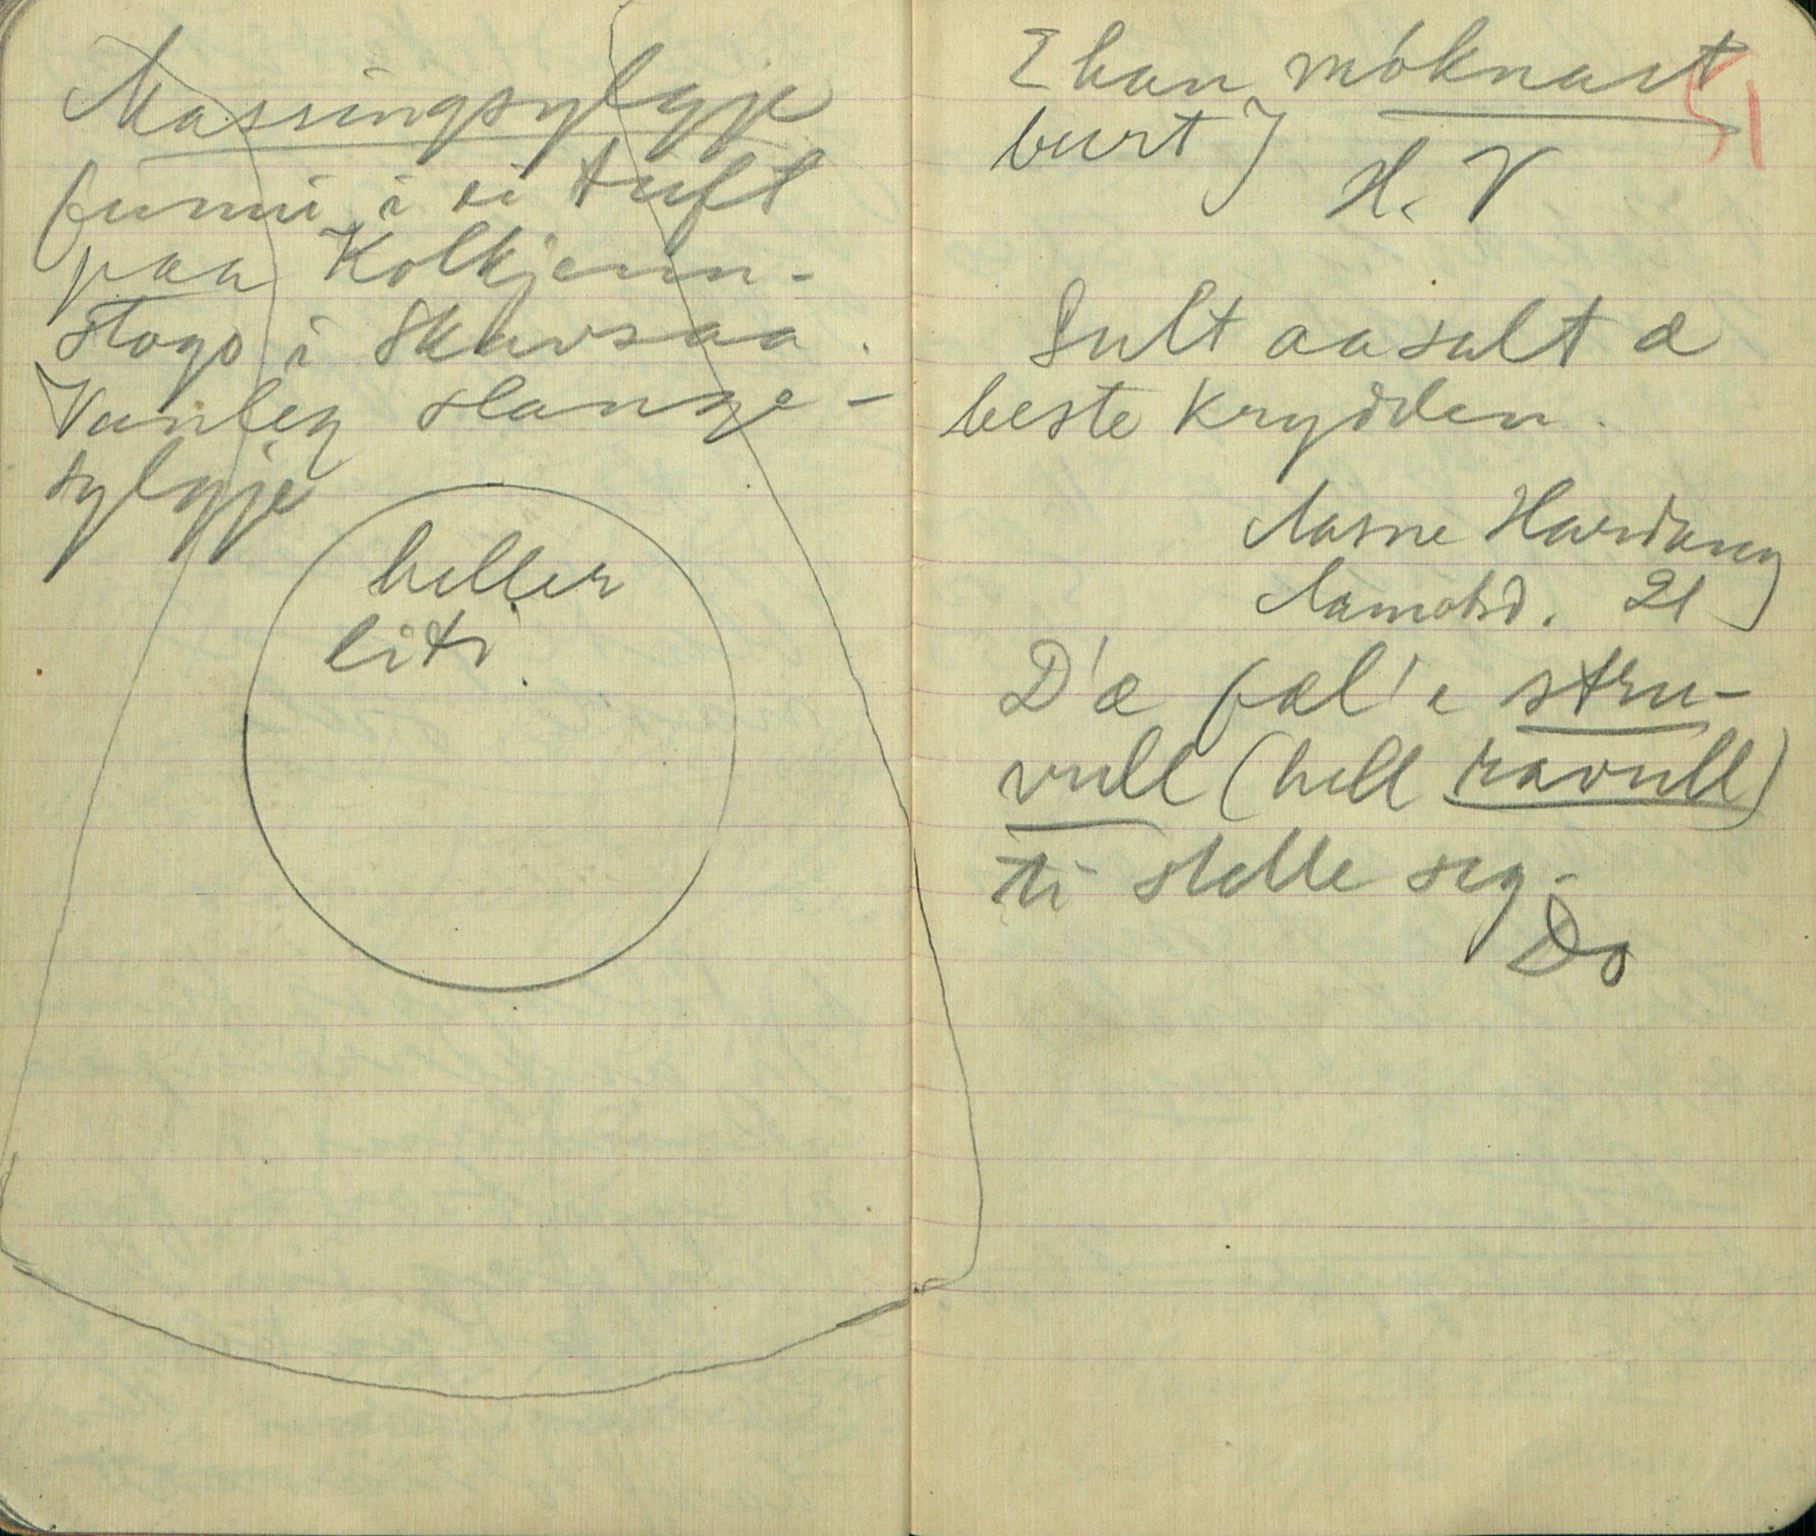 Massingsylgje
funni i ei tuft
paa Kolkjenn-
stogo i Skavsaa.
Vanleg slange-
sylgje
heller
liti.
E han móknast
burt?
H. V
51
Sult aa salt æ
beste krydden.
Aasne Hardang
Aamotsd. 21
D'æ fæl'e stru-
vull (hell ravull)
ti stelle seg.
Do